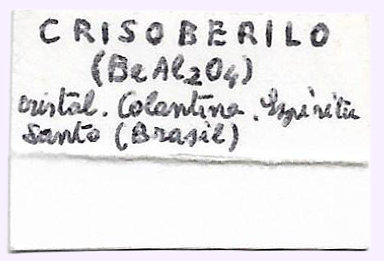 CRISOBERILO
(BeAl2O4)
cristal. Colantina. Espíritu
Santo (Brasil)